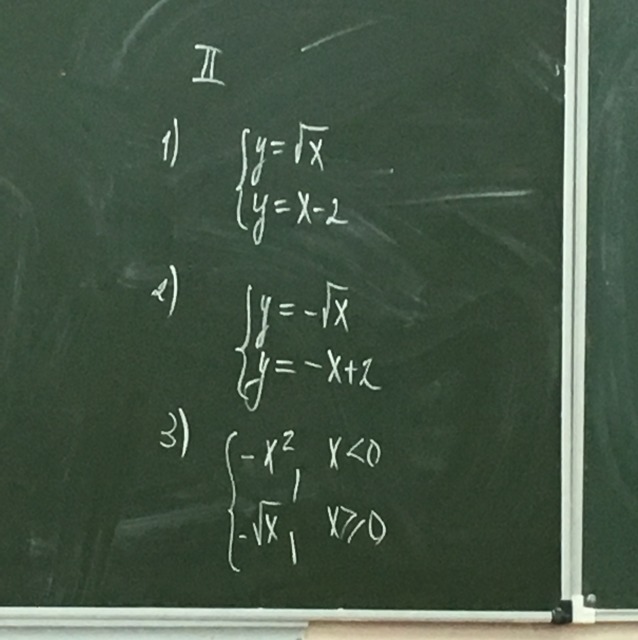 II
1) { y = √x
y = x - 2
2) { y = -√x
y = -x + 2
3) { -x², x < 0
-√x, x ⩾ 0